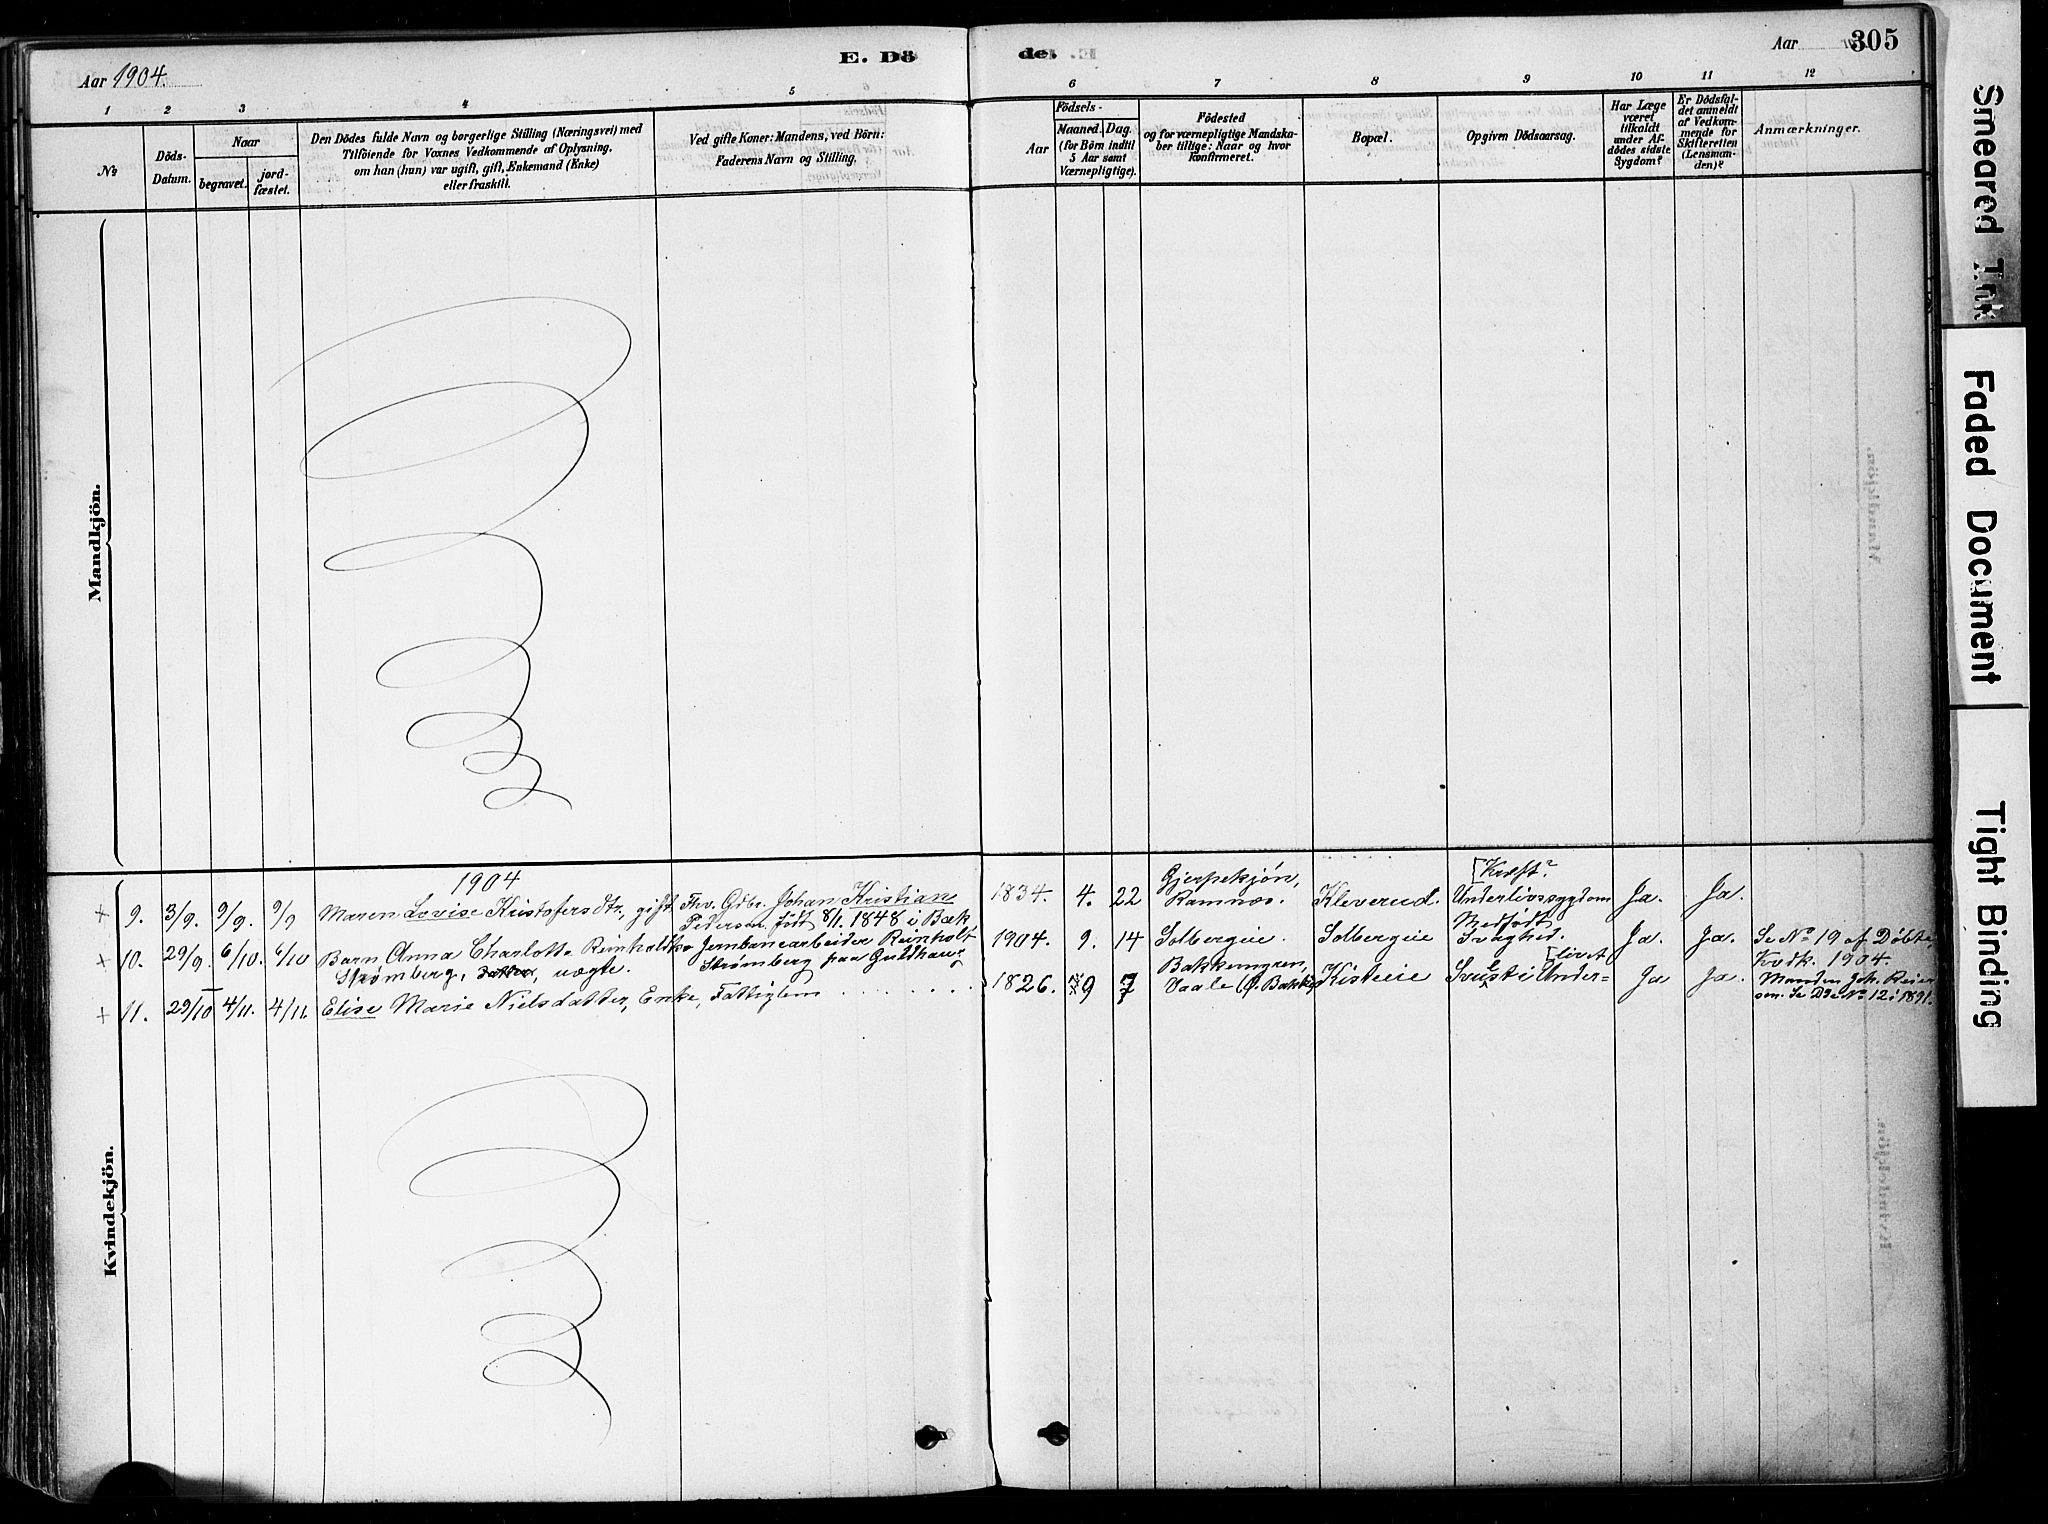 305
E. Dö
de.
Aar
Aar 1904.
1
2
3
4
5
6
7
8
9
10
11
12
No
Döds-
Datum.
Naar
begravet.
jord-
fæstet.
Den Dödes fulde Navn og borgerlige Stilling (Næringsvei) med
Tilföiende for Voxnes Vedkommende af Oplysning.
om han (hun) var ugift, gift, Enkemand (Enke)
eller fraskilt.
Ved gifte Koner: Mandens, ved Börn:
Faderens Navn og Stilling.
Aar
Födsels-
Maaned. Dag.
(for Börn indtil
5 Aar samt
Værnepligtige).
Födested
og for værnepligtige Mandska-
ber tillige: Naar og hvor
konfirmeret.
Bopæl.
Opgiven Dödsaarsag.
Har Læge
været
tilkaldt
under Af-
dödes sidste
Sygdom?
Er Dödsfal-
det anmeldt
af Vedkom-
mende for
Skifteretten
(Lensman-
den)?
Anmærkninger.
Mandkjön.
Kvindekjön.
1904
+ 9. 3/9. 9/9. 9/9 Maren Lovise Kristofersdtr, gift
Gbr. Johan Kristian
Pedersen født 8/1. 1848 i Bæk
1834. 4. 22
Gjerpekjøn,
Ramnes.
Kleverud.
[Kræft?
Underlivssygdom
Ja. Ja.
+ 10. 29/9. 6/10. 6/10 Barn Anna Charlotte Reinholds
Strømberg, Datter, uægte.
Jernbanearbeider Reinholt
Strømberg paa
1904. 9. 14 Solbergeie. Solbergeie
Medfødt
Svaghed.
Ja. Ja.
Se No 19 af Døbte
Kvdk. 1904.
+ 11. 29/10 4/11. 4/11. Elise Marie Nielsdatter, Enke, Fattiglem
1826. 9 7
Bakkemyren,
Vaale (Ø. Bakke)
Kisteeie
[livet
Svulst i Under-
Ja Ja.
Manden Joh. Reier
sen. Se Dde No 12 i 1891.
Smeared Ink
Faded Document
Tight Binding